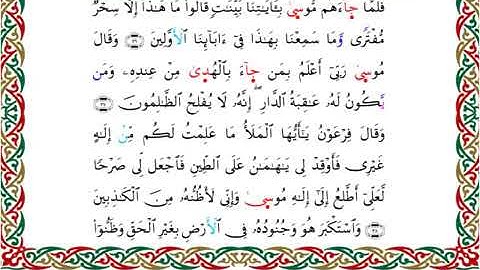 فَلَمَّا جَآءَهُم مُّوسَىٰ بِـَٔايَـٰتِنَا بَيِّنَـٰتٍ قَالُوا۟ مَا هَـٰذَآ إِلَّا سِحْرٌ
مُّفْتَرًى وَمَا سَمِعْنَا بِهَـٰذَا فِىٓ ءَابَآئِنَا ٱلْأَوَّلِينَ ۝٣٦ وَقَالَ
مُوسَىٰ رَبِّىٓ أَعْلَمُ بِمَن جَآءَ بِٱلْهُدَىٰ مِنْ عِندِهِۦ وَمَن
تَكُونُ لَهُۥ عَـٰقِبَةُ ٱلدَّارِ ۖ إِنَّهُۥ لَا يُفْلِحُ ٱلظَّـٰلِمُونَ ۝٣٧
وَقَالَ فِرْعَوْنُ يَـٰٓأَيُّهَا ٱلْمَلَأُ مَا عَلِمْتُ لَكُم مِّنْ إِلَـٰهٍ
غَيْرِى فَأَوْقِدْ لِى يَـٰهَـٰمَـٰنُ عَلَى ٱلطِّينِ فَٱجْعَل لِّى صَرْحًا
لَّعَلِّىٓ أَطَّلِعُ إِلَىٰٓ إِلَـٰهِ مُوسَىٰ وَإِنِّى لَأَظُنُّهُۥ مِنَ ٱلْكَـٰذِبِينَ
۝٣٨ وَٱسْتَكْبَرَ هُوَ وَجُنُودُهُۥ فِى ٱلْأَرْضِ بِغَيْرِ ٱلْحَقِّ وَظَنُّوٓا۟